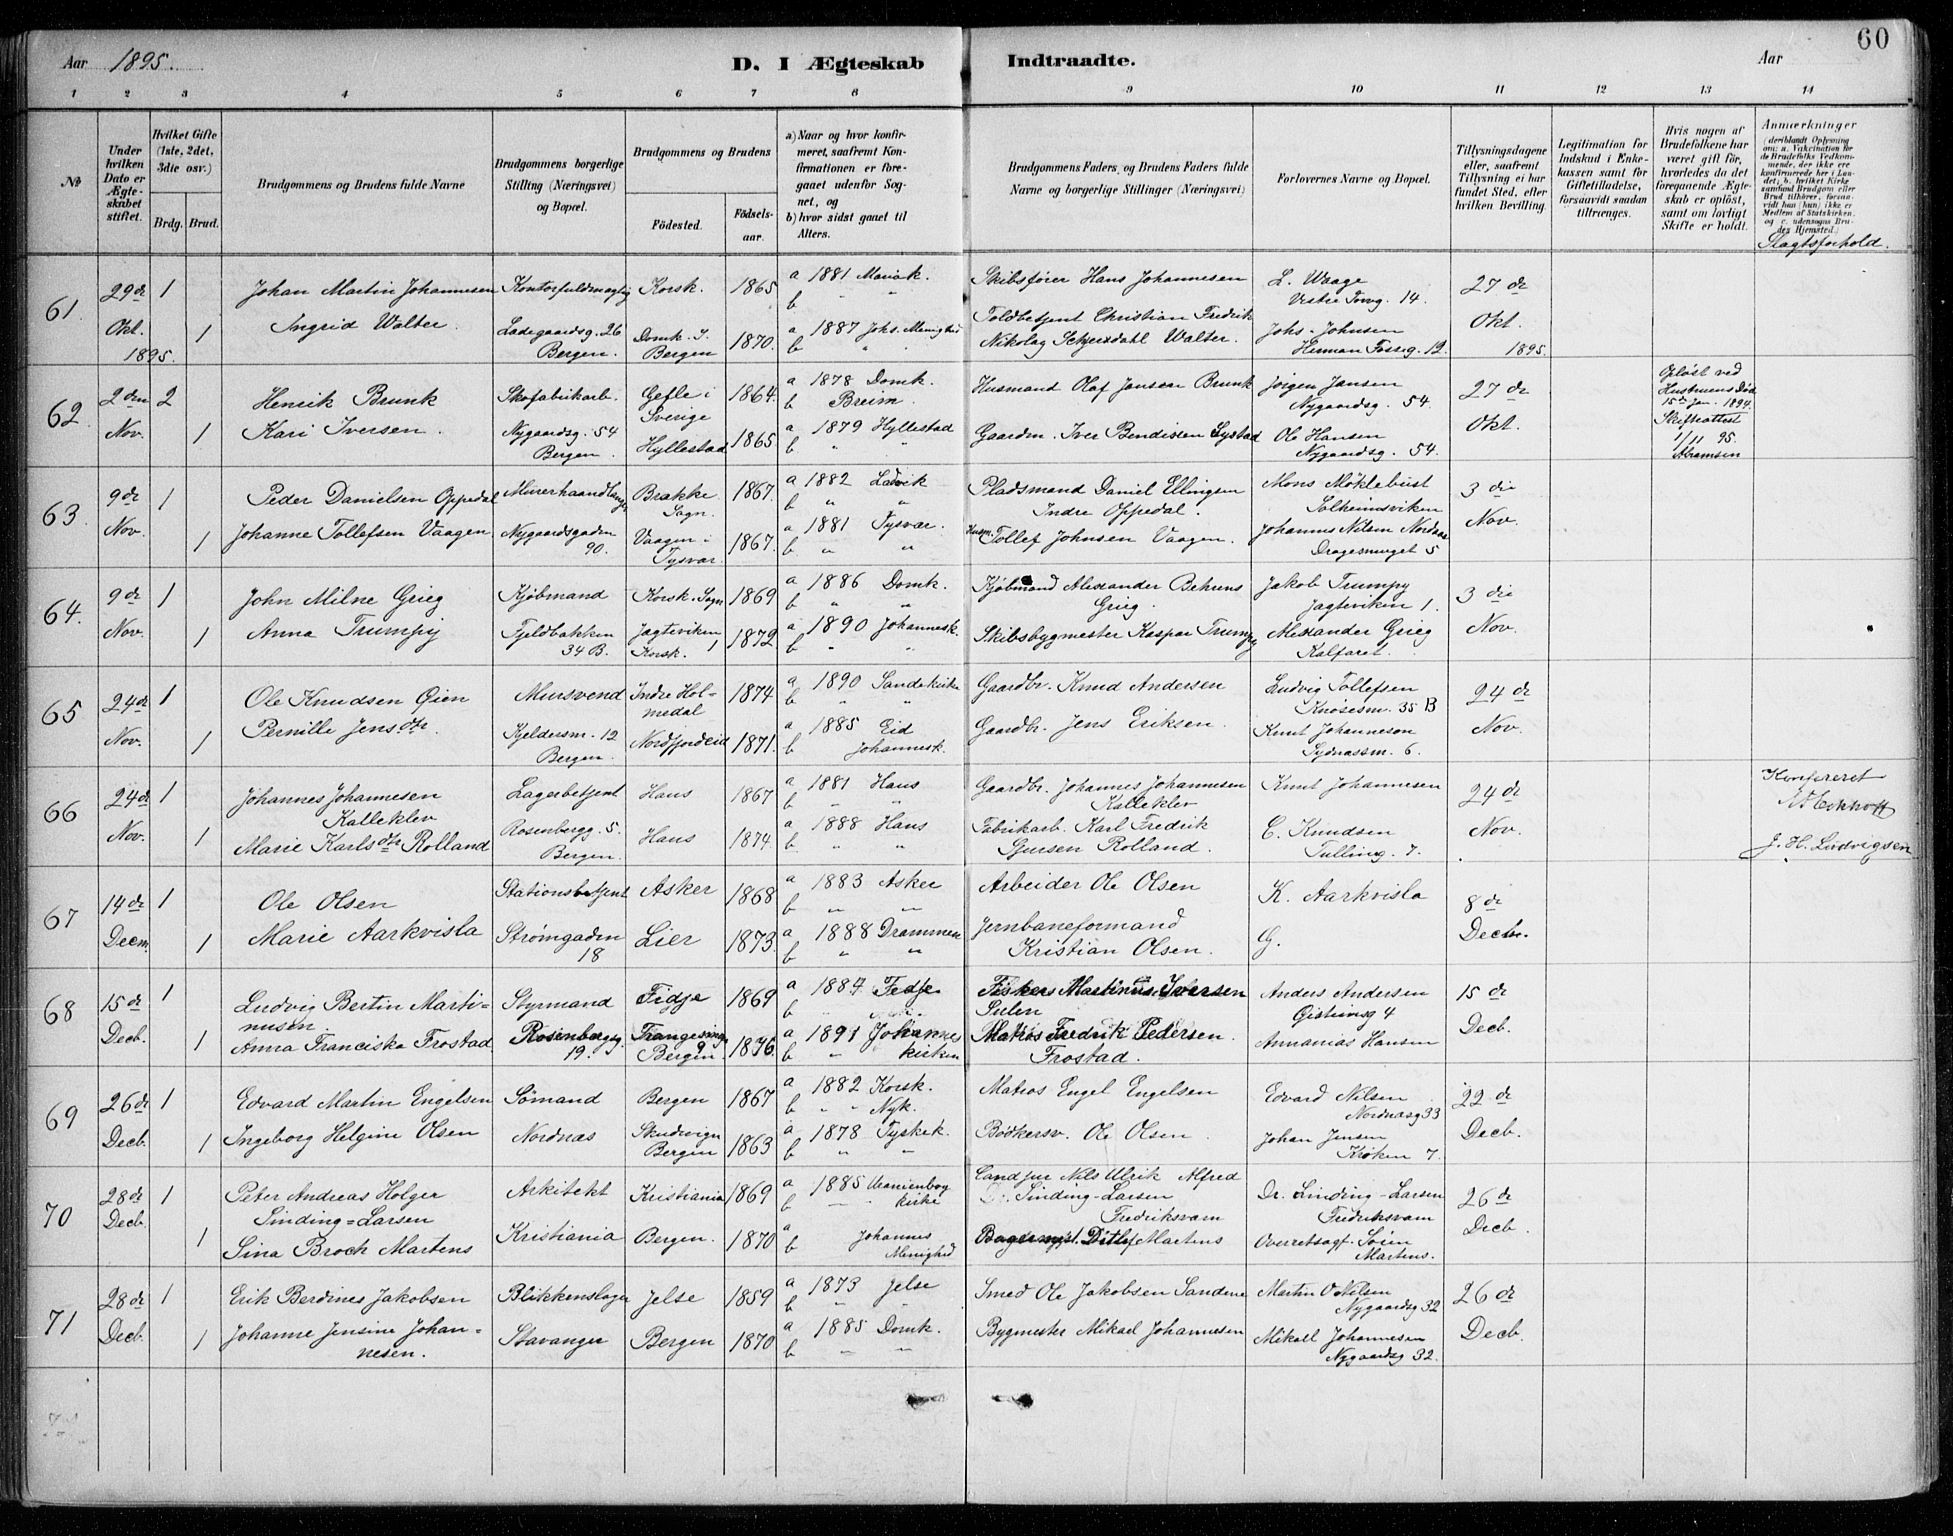 60
Aar 1895. D. I Ægteskab Indtraadte. Aar
1 2 3 4 5 6 7 8 9 10 11 12 13 14
No
Under hvilken Dato er Ægteskabet stiftet.
Hvilket Gifte (1ste, 2det, 3die osv.)
Brdg. Brud.
Brudgommens og Brudens fulde Navne
Brudgommens borgerlige Stilling (Næringsvei) og Bopæl.
Brudgommens og Brudens
Fødested. Fødselsaar.
a) Naar og hvor konfirmeret, saafremt Konfirmationen er foregaaet udenfor Sognet, og
b) hvor sidst gaaet til Alters.
Brudgommens Faders og Brudens Faders fulde Navne og borgerlige Stillinger (Næringsvei)
Forlovernes Navne og Bopæl.
Tillysningsdagene eller, saafremt Tillysning ei har fundet Sted, efter hvilken Bevilling.
Legitimation for Indskud i Enkekassen samt for Giftetilladelse, forsaavidt saadan tiltrænges.
Hvis nogen af Brudefolkene har været gift før, hvorledes da det foregaaende Ægteskab er opløst, samt om lovligt Skifte er holdt.
Anmærkninger
Slagtsforhold.
61. 29de 1 Johan Martin Johannesen Kontorfuldmægtig Korsk. 1865 a 1881 Mariak. Skibsfører Hans Johannesen L. Waage 27de
b " " Vestre Torvg. 14.
Okt. 1 Ingrid Walter. Ladegaardsg. 26 Domk. S. 1870. a 1887 Johs. Menighed Toldbetjent Christian Fredrik Johs. Johnsen Okt.
1895. Bergen. Bergen b " " Nikolay Walter. Herman Fossg. 12. 1895.
62 2den 2 Henrik Brunk Skofabrikarb. Gefle i 1864. a 1878 Domk. Husmand Olaf Jansen Brunk Jørgen Jansen 27de Opløst ved
Sverige b Breim Nygaardsg. 54. Hustruens Død
Nov. 1 Kari Iversen. Nygaardsg. 54 Hyllestad 1865 a 1879 Hyllestad Gaardm. Iver Bendixen Systad Ole Hansen Okt. 15de Jan. 1894.
Bergen. b " " Nygaardsg. 54. Skifteattest
1/11 95.
Abramsen
63. 9de 1 Peder Danielsen Oppedal Murerhaandlanger Brække 1867. a 1882 Ladvik Pladsmand Daniel Ellingsen Mons Møklebust 3die
Sogn. b " " Indre Oppedal. Solheimsviken
Nov. 1 Johanne Tollefsen Vaagen Nygaardsgaden Vaagen i 1867. a 1881 Tysvær. Husm. Tollef Johnsen Vaagen. Johannes Nilsen Nordaas Nov.
90. Tysvær. b " " Dragesmuget 5
64. 9de 1 John Milne Grieg Kjøbmand Korsk. Sogn 1869 a 1886 Domk. Kjøbmand Alexander Behrens Jakob Trumpy 3die
b " " Grieg. Jagteviken 1.
Nov. 1 Anna Trumpy Fjeldbakken Jagteviken 1 1872 a 1890 Johannesk. Skibsbygmester Kaspar Trumpy Alexander Grieg Nov.
34 B. Korsk. b " " Kalfaret.
65 24de 1 Ole Knudsen Øien Mursvend Indre Hol- 1874 a 1890 Sandekirke Gaardbr. Knud Andersen Ludvig Tollefsen 24de
medal b " " Knøsesm. 35 B
Nov. 1 Pernille Jensdtr. Kjeldersm. 12 Nordfjordeid 1871. a 1885 Eid Gaardbr. Jens Eriksen. Knut Johanneson Nov.
Bergen. b Johannesk. Sydnæssm. 6.
66 24de 1 Johannes Johannesen Lagerbetjent Haus 1867 a 1881 Haus Gaardbr. Johannes Johannesen Knut Johannesen 24de Konfereret
Kalleklev b " " Kalleklev
Nov. 1 Marie Karlsdtr. Rolland Rosenbergg. 5. Haus 1874. a 1888 Haus Fabrikarb. Karl Fredrik C. Knudsen Nov.
Bergen. b " " Sjursen Rolland. Tulling. 7. J. H. Ludvigsen
67 14de 1 Ole Olsen Stationsbetjent Asker 1868 a 1883 Asker Arbeider Ole Olsen K. Aarkvisla 8de
b " "
Decm. 1 Marie Aarkvisla Strømgaden Lier 1873. a 1888 Drammen Jernbaneformand G. Decbr.
18 b " " Kristian Olsen.
68 15de 1 Ludvig Bertin Marti- Styrmand Fidje 1869 a 1884 Fedje Fisker Martinus Iversen Anders Andersen 15de
nusen b Sulen 4
Decb. 1 Anna Franciska Frostad Rosenbergg. Trangesmug 9 1876. a 1891 Johannes Matros Fredrik Pedersen Annanias Hansen Decb.
19. Bergen. b " kirken Frostad.
69 26de 1 Edvard Martin Engelsen Sømand Bergen 1867 a 1882 Korsk. Matros Engel Engelsen Edvard Nilsen 22de
b " " Nyk. Nordnæsg 33
Decb. 1 Ingeborg Helgine Olsen Nordnæs Skudevign 1863 a 1878 Tyskek. Bødkersv. Ole Olsen. Johan Jensen Decb.
Bergen b " " Krøken 7.
70 28de 1 Peter Andreas Holger Arkitekt Kristiania 1869 a 1885 Uranienborg Cand jur Nils Ulrik Alfred Dr. Sinding-Larsen 26de
Sinding=Larsen b " kirke Sinding-Larsen Fredriksværn
Decb. Fredriksværn
1 Sina Broch Martens Kristiania Bergen. 1870 a Johannes Bagermst. Ditlef Martens Overretssagf. Søren Decb.
b Menighed Martens.
71 28de 1 Erik Berdines Jakobsen Blikkenslager Jelse 1859 a 1873 Jelse Smed Ole Jakobsen Sandene Martin O. Nilsen 26de
b " " Nygaardsg 32
Decb. 1 Johanne Jensine Johan= Stavanger Bergen 1870 a 1885 Domk. Bygmester Mikael Johannesen Mikael Johannesen Decb.
nesen. b " " Nygaardsg 32.